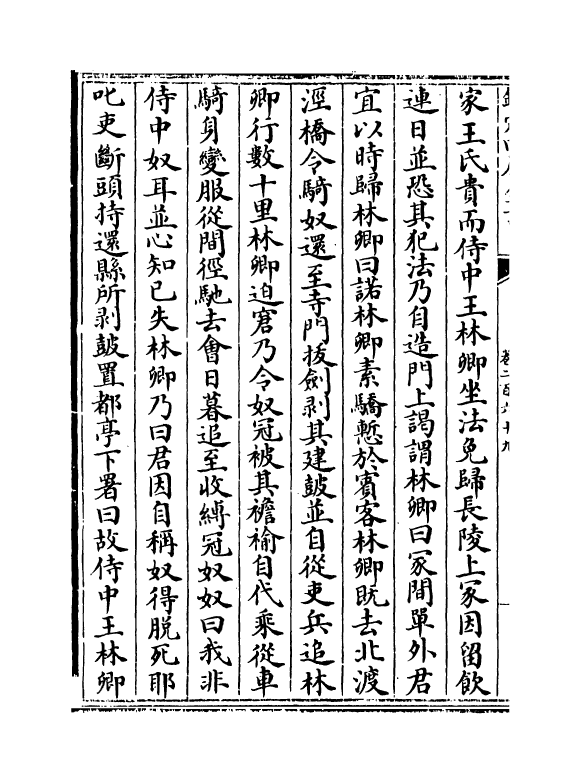 卷二百六十九
家王氏貴而侍中王林卿坐法免歸長陵上冢因留飲
連日並恐其犯法乃自造門上謁謂林卿曰冢間單外君
宜以時歸林卿曰諾林卿素驕慙於賓客林卿既去北渡
涇橋令騎奴還至寺門拔劍剥其建鼓並自從吏兵追林
卿行數十里林卿迫窘乃令奴冠被其襜褕自代乘從車
騎身變服從間徑馳去會日暮追至收縛冠奴奴曰我非
侍中奴耳並心知已失林卿乃曰君困自稱奴得脱死耶
叱吏斷頭持還縣所剥鼓置都亭下署曰故侍中王林卿